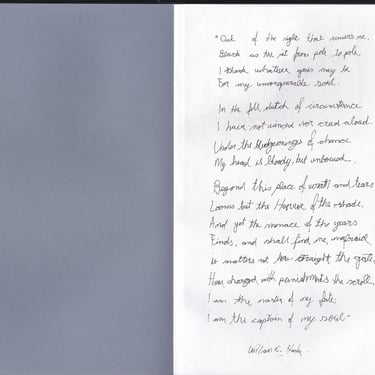 "Out of the night that covers me,
Black as the pit from pole to pole,
I thank whatever gods may be
For my unconquerable soul.
In the fell clutch of circumstance
I have not winced nor cried aloud.
Under the bludgeonings of chance
My head is bloody, but unbowed.
Beyond this place of wrath and tears
Looms but the Horror of the shade,
And yet the menace of the years
Finds, and shall find me, unafraid.
It matters not how straight the gate,
How charged with punishments the scroll,
I am the master of my fate
I am the captain of my soul"
William E. Henley.